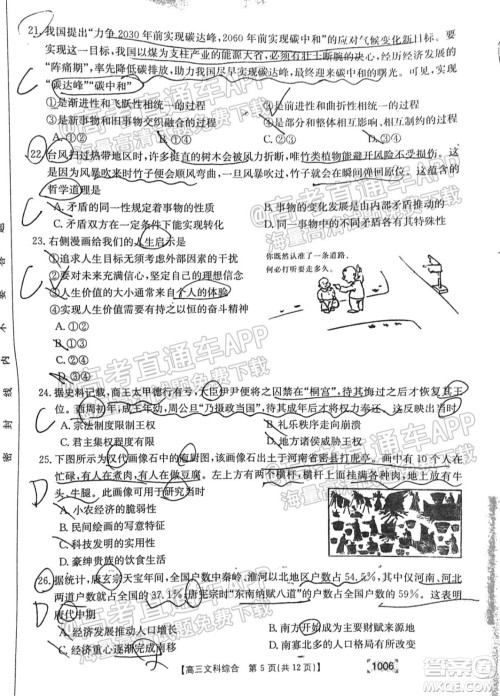 21. 我国提出“力争2030年前实现碳达峰，2060年前实现碳中和”的应对气候变化新目标。要
实现这一目标，我国以煤为支柱产业的能源大省，必须有壮士断腕的决心，经历经济发展的
“阵痛期”，率先降低碳排放，助力我国尽早实现碳达峰，最终迎来碳中和的曙光。可见，实现
“碳达峰”“碳中和”
①是渐进性和飞跃性相统一的过程 ②是前进性和曲折性相统一的过程
③是新事物和旧事物交织融合的过程
A. ①②
22. 台风扫过热带地区时，许多挺直的树木会被风力折断，唯竹类植物能避开风险不受损伤。这
是因为风暴吹来时竹子便会顺风弯曲，一旦风暴吹过去，竹子就会在瞬间弹回原位。这蕴含的
哲学道理是
A. 矛盾的同一性规定着事物的性质 B. 事物的变化发展是由内部矛盾推动的
C. 矛盾双方在一定条件下能实现转化 D. 同一事物中的不同矛盾各有其特殊性
23. 右侧漫画给我们的人生启示是
①追求人生目标无须考虑外部因素的干扰
②要在不断完善自身中实现美好生活
③人生价值的大小通常来自个人的体验
④实现人生价值要以持之以恒的奋斗精神
A. ①②
B. ①③
C. ②④
D. ③④
你既然认准了一条道路，
何必打听要走多久。
24. 据史料记载，商王太甲德行有亏，大臣伊尹便将之囚禁在“桐宫”，待其悔过之后才恢复其王
位。西周初年，成王年幼，周公旦“乃摄政当国”，待其成年后才将权力奉还。这反映出当时
A. 宗法制度限制王权 B. 礼乐秩序走向成熟
C. 君主专制权力有限 D. 地方诸侯威胁王权
25. 下图所示为汉代画像石中的庖厨图，该画像石出土于河南省密县打虎亭。画面中有10个人在
忙碌，有人在煮肉，有人在做豆腐。右方有两个横杆，横杆上挂满了肉，左边地上放有牛头、
牛腿。此画像可用于研究当时
A. 小农经济的脆弱性
B. 人民绘画的写意特征
C. 科技发明的实用性
D. 豪贵阶级的饮食生活
26. 据统计，唐玄宗天宝年间，全国户数中秦岭、淮河以北地区户数占54.5%，其中仅河南、河北
两道户数就占当时全国户数的37.1%；唐宪宗时“东南纳赋八道”的户数占全国59%。这表明
唐代中期
A. 经济发展推动人口增长 B. 南方开始成为主要财赋来源地
C. 经济重心逐渐完成南移 D. 南北人口格局出现明显变化
【高三文科综合 第5页（共12页）】
1006
密 封 线 内 不 要 答 题